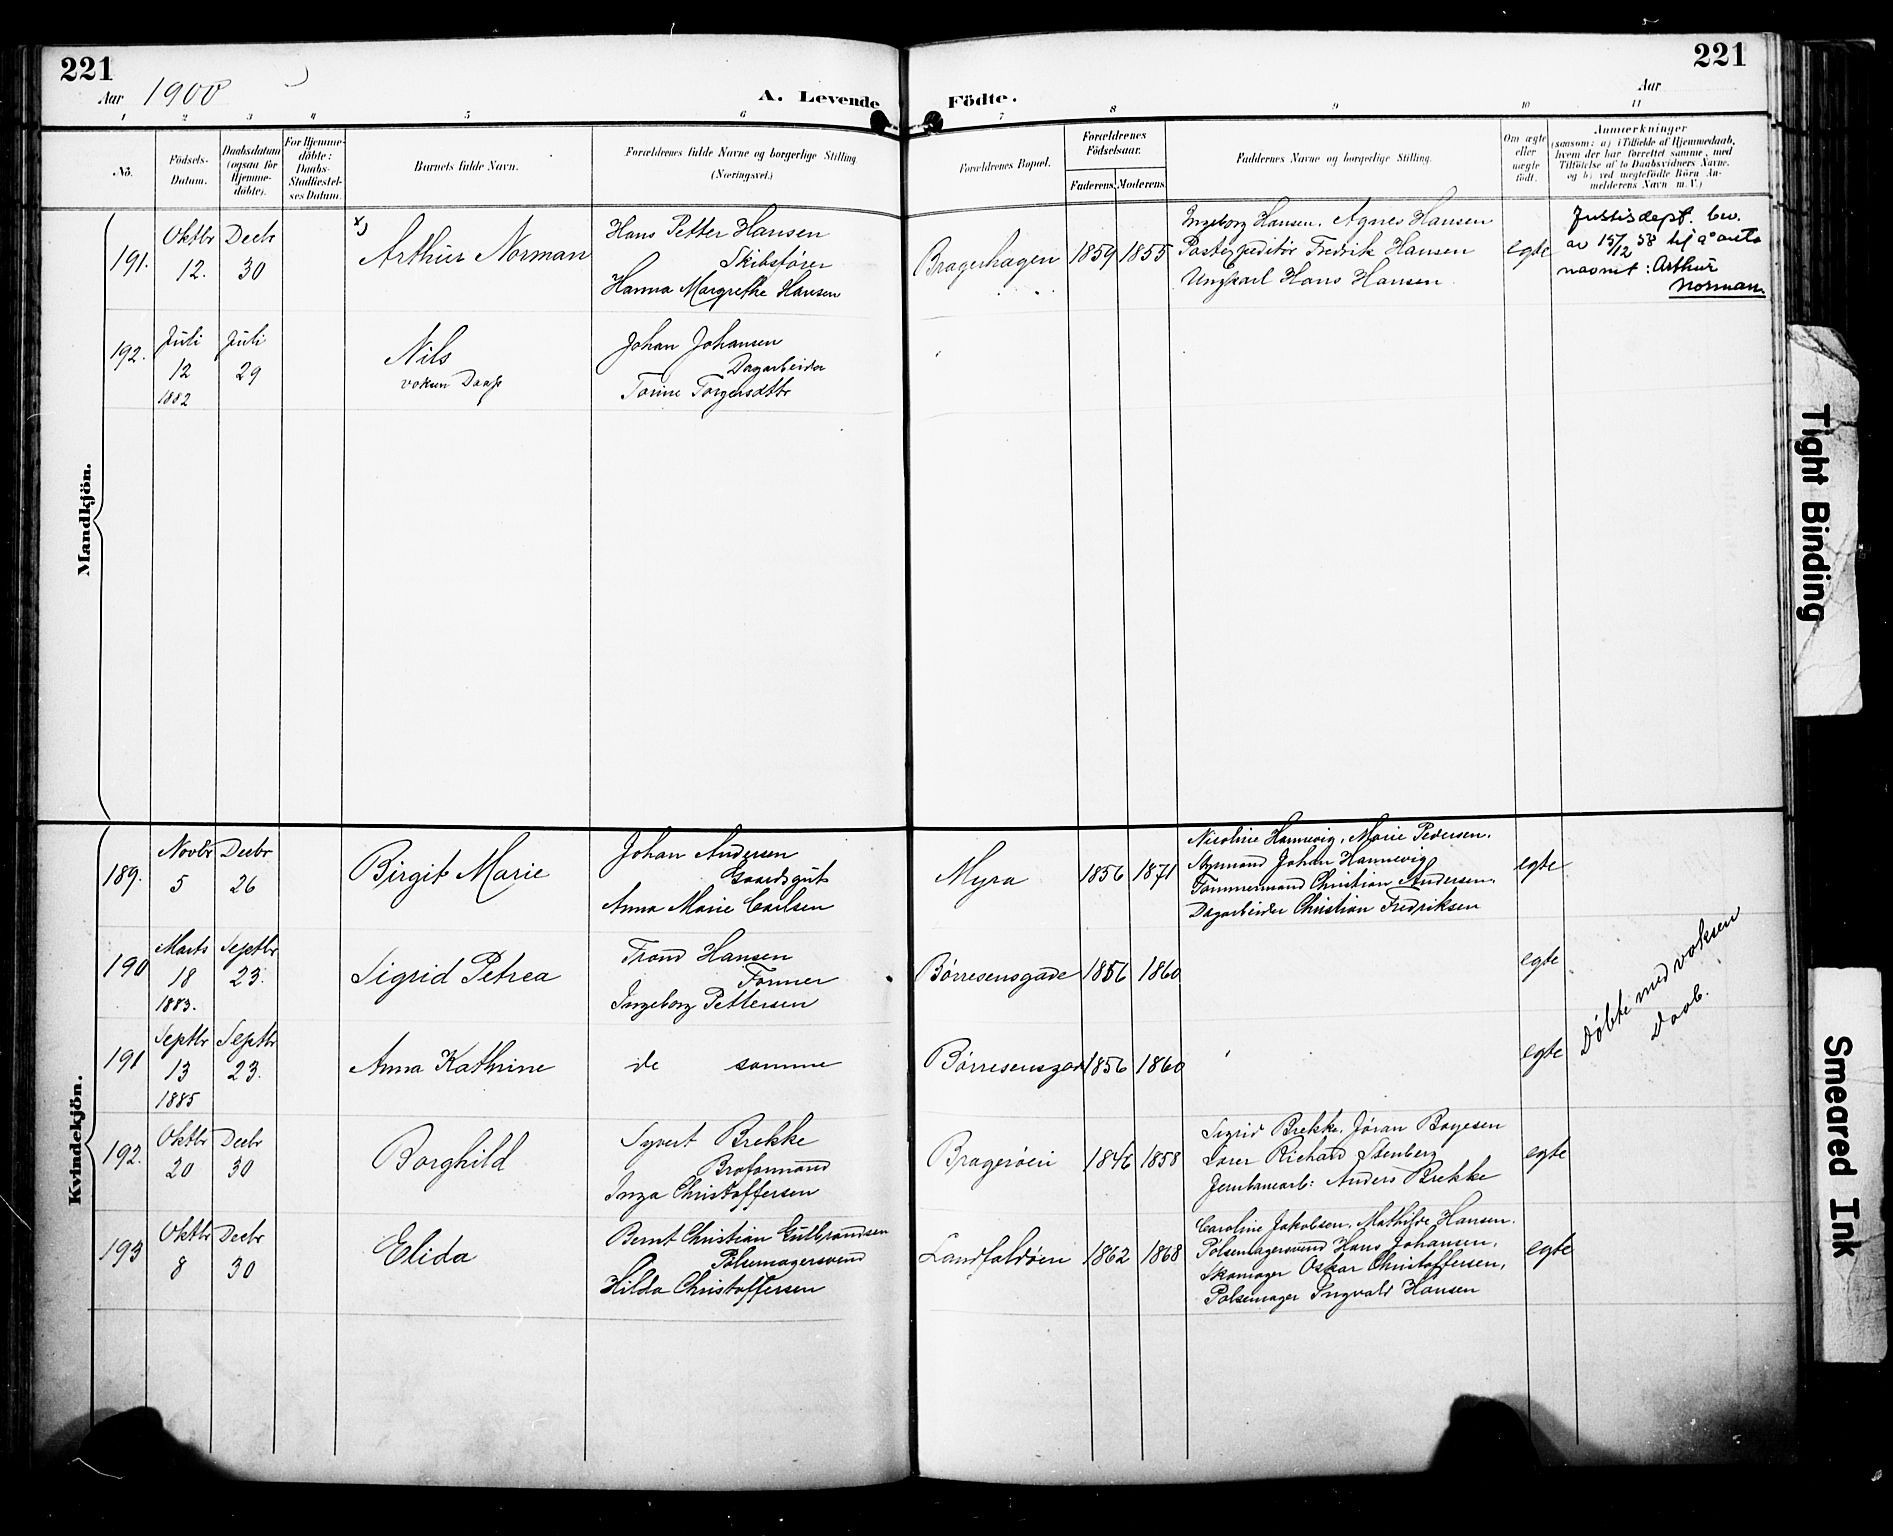 221
221
Aar 1900
A. Levende Födte.
Aar
1 2 3 4 5 6 7 8 9 10 11
Nô.
Födsels-
Datum.
Daabsdatum
(ogsaa for
Hjemme-
döbte).
For Hjemme-
döbte:
Daabs-
Stadfæstel-
ses Datum.
Barnets fulde Navn.
Forældrenes fulde Navne og borgerlige Stilling
(Næringsvei.)
Forældrenes Bopæl.
Forældrenes
Födselsaar.
Faderens Moderens
Faddernes Navne og borgerlige Stilling.
Om ægte
eller
uægte
födt.
Anmærkninger
(saasom: a) i Tilfælde af Hjemmedaab,
hvem der har forrettet samme, med
Tilföielse af to Daabsvidners Navne.
og b) ved uægtefödte Börn An-
melderens Navn m. V.)
Mandkjön.
191.
Oktbr
12.
Decbr
30
x)
Arthur Norman
Hans Petter Hansen
Skibsfører
Hanna Margrethe Hansen
Bragerhagen
1859
1855
Ingeborg Hansen, Agnes Hansen
Postexpeditør Fredrik Hansen
Ungkarl Hans Hansen
egte
Justisdept. bev.
av 15/12 58 til å anta
navnet: Arthur
Norman
192.
Juli
12
1882
Juli
29
Nils
voksen Daab
Johan Johansen
Dagarbeider
Torine Torgersdtbr
Kvindekjön.
189.
Novbr
5
Decbr
26
Birgit Marie
Johan Andersen
Gaardsgut
Anna Marie Carlsen
Myra
1856
1871
Nicoline Hannevig, Marie Pedersen.
Johan Hannevig
Tømmermand Christian Andersen.
Dagarbeider Christian Fredriksen
egte
190
Marts
18
1883.
Septbr
23.
Sigrid Petrea
Trond Hansen
Former
Ingeborg Pettersen
Børresensgade
1856
1860
egte
Døbte med voksen
Daab.
191
Septbr
13
1885
Septbr
23.
Anna Kathrine
de samme
Børresensgade
1856
1860
egte
192.
Oktbr
20
Decbr
30
Borghild
Syvert Brekke
Broformand
Inga Christoffersen
Bragerøen
1846
1858
Sigrid Brekke, Jøran Bøyesen
Richard Stenberg
Jernbanearb: Anders Brekke
egte
193
Oktbr
8
Decbr
30
Elida
Bernt Christian Gulbrandsen
Pølsemagersvend
Hilda Christoffersen
Landfaldøen
1862
1868
Caroline Jakobsen, Mathilde Hansen.
Pølsemagersvend Hans Johansen,
Skomager Oskar Christoffersen,
Pølsemager Ingvald Hansen
egte
Tight Binding
Smeared Ink